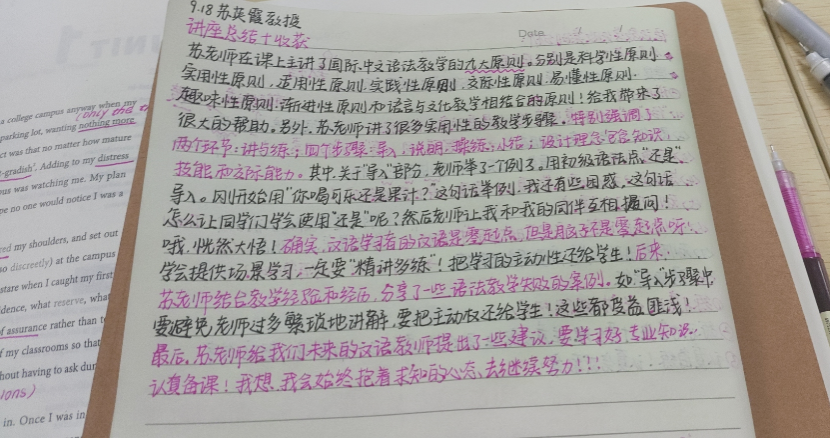 9.18 苏英霞教授
讲座总结+收获
Date
苏老师在课上主讲了国际中文语法教学的九大原则。分别是科学性原则
实用性原则、适用性原则、实践性原则、交际性原则、易懂性原则、
趣味性原则、渐进性原则和语言与文化教学相结合的原则!给我带来了
很大的帮助。另外,苏老师讲了很多实用性的教学步骤。特别强调了
两个环节:讲与练;四个步骤:导入、说明、操练、小结;设计理念包含知识、
技能和交际能力。其中,关于"导入"部分,老师举了一个例子。用初级语法点"还是"
导入。刚开始用"你喝可乐还是果汁?"这句话举例,我还有些困惑,这句话
怎么让同学们学会使用"还是"呢?然后老师让我和我的同伴互相提问!
哦,恍然大悟!确实,汉语学习者的汉语是零起点,但是脑子不是零起点呀!
学会提供场景学习,一定要"精讲多练"!把学习的主动性还给学生!后来,
苏老师结合教学经验和经历,分享了一些语法教学失败的案例。如"导入"步骤中
要避免老师过多繁琐地讲解,要把主动权还给学生!这些都受益匪浅!
最后,苏老师给我们未来的汉语教师提出了一些建议,要学习好专业知识,
认真备课!我想,我会始终抱着求知的心态,去继续努力!!!
a college campus anyway when my
(only the
parking lot, wanting nothing more
ct was that no matter how mature
-gradish'. Adding to my distress
us was watching me. My plan
pe no one would notice I was a
ed my shoulders, and set out
so discreetly) at the campus
state when I caught my first
dence, what reserve, what
f assurance rather than t
f my classrooms so that
hout having to ask dur
ions)
in. Once I was in